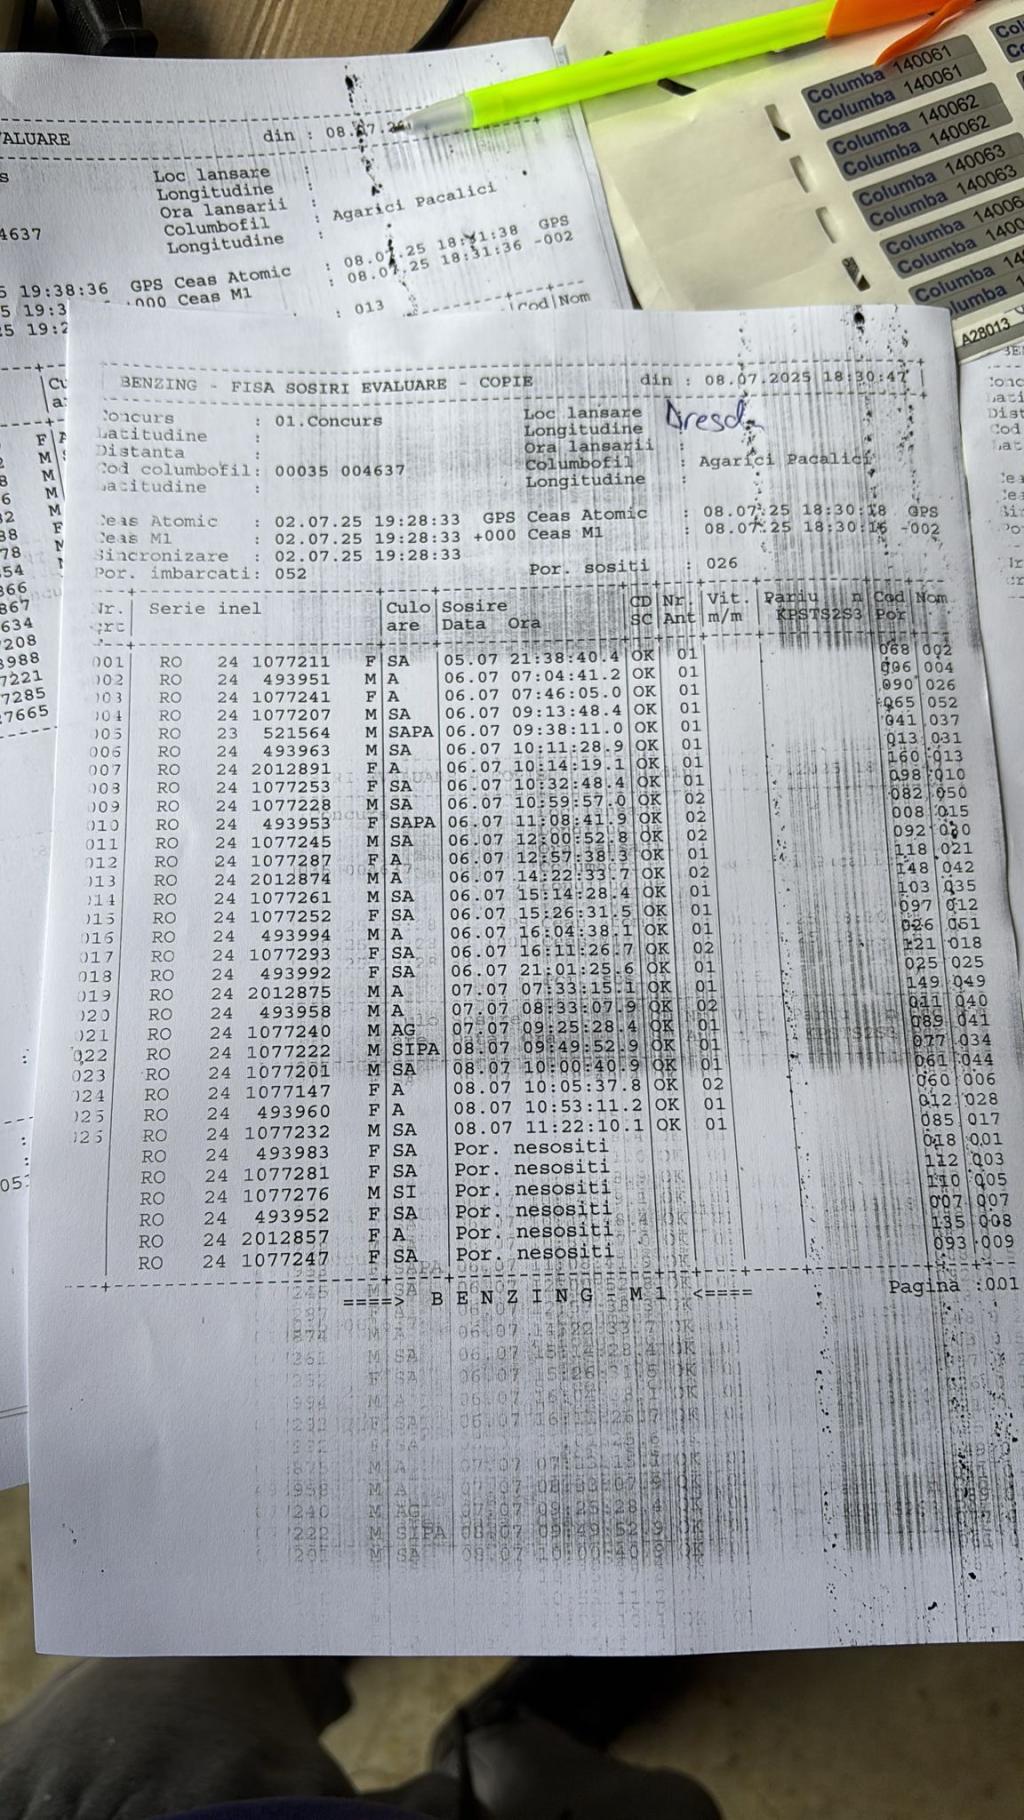 VALUARE din : 08.07.
Loc lansare :
Longitudine :
Ora lansarii :
Columbofil : Agarici Pacalici
Longitudine :
4637
19:38:36 GPS Ceas Atomic : 08.07.25 18:31:38 GPS
000 Ceas M1 : 08.07.25 18:31:36 -002
: 013
Cod|Nom
Columba 140061
Columba 140061
Columba 140062
Columba 140062
Columba 140063
Columba 140063
Columba
Columba
Columba
A28013
BENZING - FISA SOSIRI EVALUARE - COPIE din : 08.07.2025 18:30:47
Concurs : 01.Concurs Loc lansare Dresda
Latitudine : Longitudine :
Distanta : Ora lansarii :
Cod columbofil: 00035 004637 Columbofil : Agarici Pacalici
Latitudine : Longitudine :
Ceas Atomic : 02.07.25 19:28:33 GPS Ceas Atomic : 08.07.25 18:30:18 GPS
Ceas M1 : 02.07.25 19:28:33 +000 Ceas M1 : 08.07.25 18:30:16 -002
Sincronizare : 02.07.25 19:28:33
Por. imbarcati: 052 Por. sositi : 026
Nr. | Serie inel |Culo|Sosire |CD|Nr.|Vit.|Pariu n|Cod|Nom
crt| |are |Data Ora |SC|Ant|m/m | KPSTS2S3|Por|
001 RO 24 1077211 F SA 05.07 21:38:40.4 OK 01 068 002
002 RO 24 493951 M A 06.07 07:04:41.2 OK 01 006 004
003 RO 24 1077241 F A 06.07 07:46:05.0 OK 01 090 026
004 RO 24 1077207 M SA 06.07 09:13:48.4 OK 01 065 052
005 RO 23 521564 M SAPA 06.07 09:38:11.0 OK 01 041 037
006 RO 24 493963 M SA 06.07 10:11:28.9 OK 01 013 031
007 RO 24 2012891 F A 06.07 10:14:19.1 OK 01 160 013
008 RO 24 1077253 F SA 06.07 10:32:48.4 OK 01 098 010
009 RO 24 1077228 M SA 06.07 10:59:57.0 OK 02 082 050
010 RO 24 493953 F SAPA 06.07 11:08:41.9 OK 02 008 015
011 RO 24 1077245 M SA 06.07 12:00:52.8 OK 02 092
012 RO 24 1077287 F A 06.07 12:57:38.3 OK 01 118 021
013 RO 24 2012874 M A 06.07 14:22:33.7 OK 02 148 042
014 RO 24 1077261 M SA 06.07 15:14:28.4 OK 01 103 035
015 RO 24 1077252 F SA 06.07 15:26:31.5 OK 01 097 012
016 RO 24 493994 M A 06.07 16:04:38.1 OK 01 026 051
017 RO 24 1077293 F SA 06.07 16:11:26.7 OK 02 121 018
018 RO 24 493992 F SA 06.07 21:01:25.6 OK 01 025 025
019 RO 24 2012875 M A 07.07 07:33:15.1 OK 01 149 049
020 RO 24 493958 M A 07.07 08:33:07.9 OK 02 011 040
021 RO 24 1077240 M AG 07.07 09:25:28.4 OK 01 089 041
022 RO 24 1077222 M SIPA 08.07 09:49:52.9 OK 01 077 034
023 RO 24 1077201 M SA 08.07 10:00:40.9 OK 01 061 044
024 RO 24 1077147 F A 08.07 10:05:37.8 OK 02 060 006
025 RO 24 493960 F A 08.07 10:53:11.2 OK 01 012 028
026 RO 24 1077232 M SA 08.07 11:22:10.1 OK 01 085 017
RO 24 493983 F SA Por. nesositi 018 001
RO 24 1077281 F SA Por. nesositi 112 003
RO 24 1077276 M SI Por. nesositi 110 005
RO 24 493952 F SA Por. nesositi 007 007
RO 24 2012857 F A Por. nesositi 135 008
RO 24 1077247 F SA Por. nesositi 093 009
====> B E N Z I N G - M 1 <==== Pagina :001